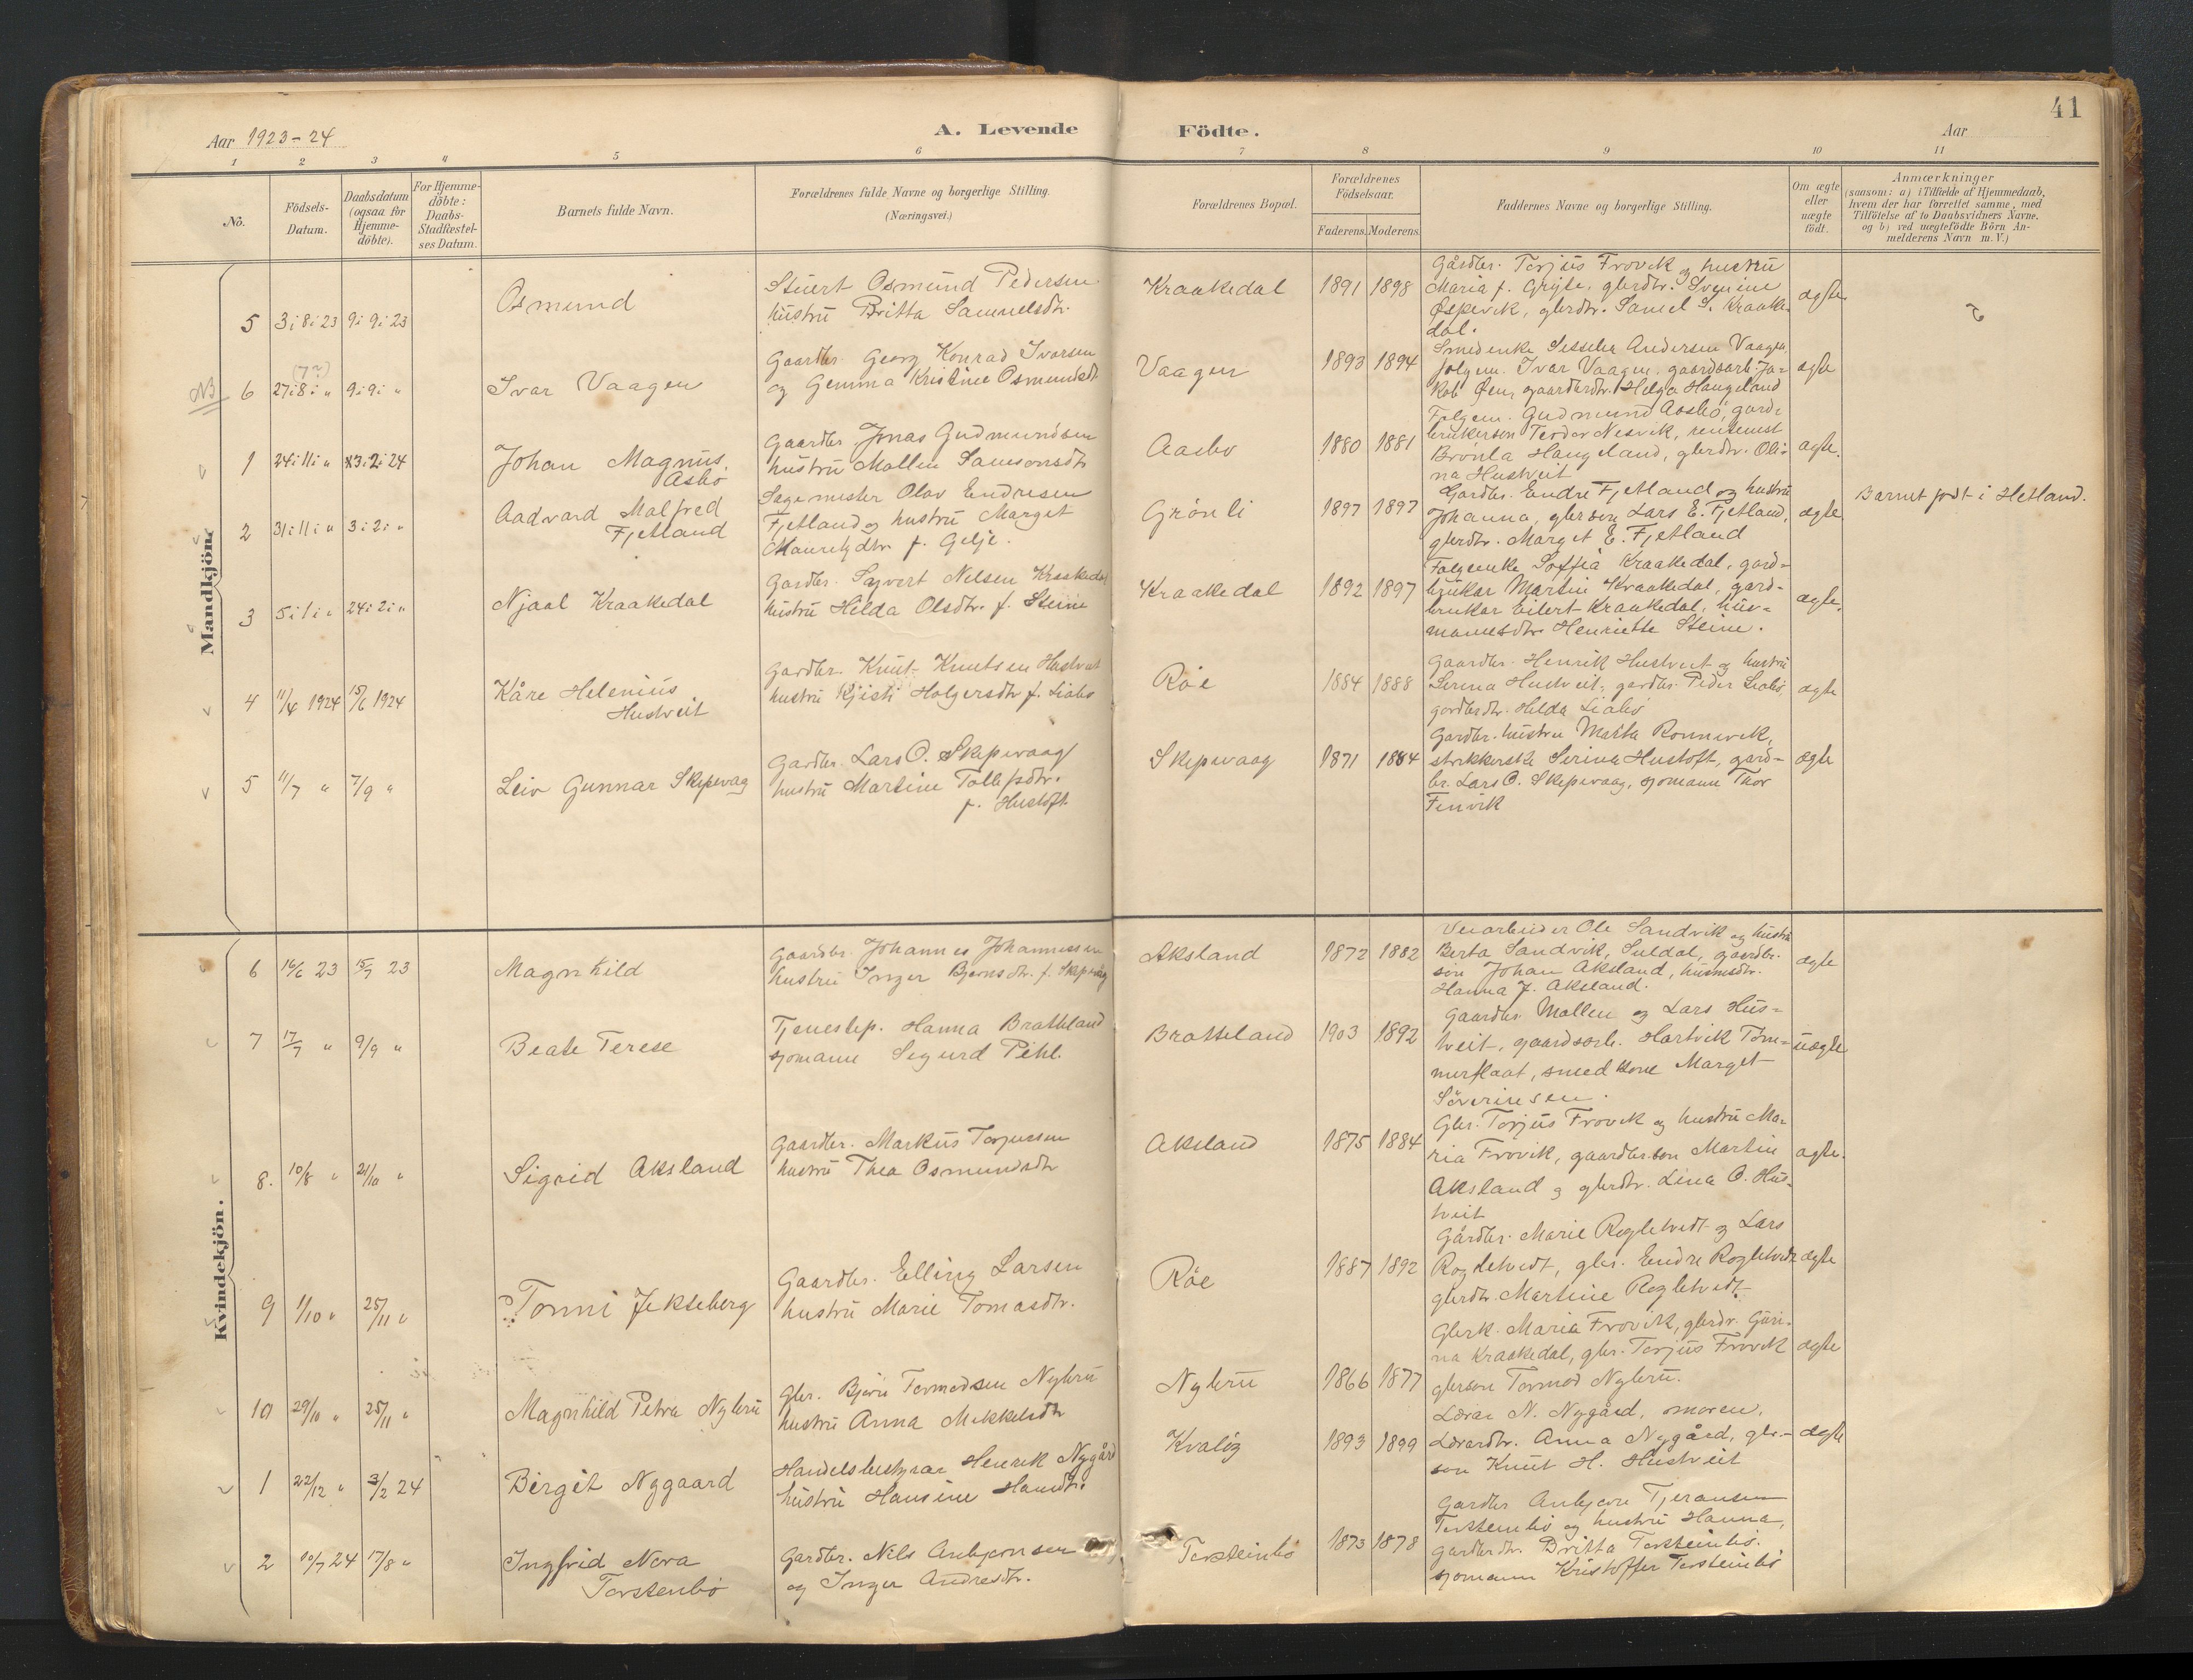 41
Aar 1923-24
A. Levende Födte.
Aar
1 2 3 4 5 6 7 8 9 10 11
No.
Födsels-
Datum.
Daabsdatum
(ogsaa for
Hjemme-
döbte).
For Hjemme-
döbte:
Daabs-
Stadfæstel-
ses Datum.
Barnets fulde Navn.
Forældrenes fulde Navne og borgerlige Stilling.
(Næringsvei.)
Forældrenes Bopæl.
Forældrenes
Födselsaar.
Faderens. Moderens.
Faddernes Navne og borgerlige Stilling.
Om ægte
eller
uægte
födt.
Anmærkninger
(saasom: a) i Tilfælde af Hjemmedaab,
hvem der har forrettet samme, med
Tilföielse af to Daabsvidners Navne.
og b) ved uægtefödte Börn An-
melderens Navn m. V.)
Mandkjön.
5 3i 8i 23 9i 9i 23
Osmund
Osmund Pedersen
hustru Britta Samuelsdtr.
Kraakedal
1891 1898
Gårdbr. Torjus Frovik og hustru
Maria f. gbrdtr.
gbrdtr. Samel S. Kraake-
dal.
ægte
NB 6 (7?)
27i 8i " 9i 9i "
Ivar Vaagen
Gaardbr. Georg Konrad Ivarsen
og Gemma Kristine Osmundsdt
Vaagen
1893 1894
Smedenke Andersen Vaagen
Ivar Vaagen, gaardsarb. Ja-
kob Øen, gaardbrdtr. Helga Haugeland
ægte
1 24i 11i " 3i 2i 24
Johan Magnus
Asbø
Gaardbr. Jonas Gudmundsen
hustru Mallen Samsonsdtr
Aasbø
1880 1881
Gudmund Aasbø, gard-
brukerson Teodor Nesvik,
Haugeland, gbrdtr. Oli-
na Hustveit
ægte.
2 31i 11i " 3i 2i "
Aadvard Malfred
Fjetland
Sagemester Olav Endresen
Fjetland og hustru Marget
f. Gelje.
Grønli
1897 1897
Gardbr. Endre Fjetland og hustru
Johanna, gbrson Lars E. Fjetland,
gbrdtr. Marget E. Fjetland
ægte.
Barnet født i Hetland.
3 5i 1i " 24i 2i "
Njaal Kraakedal
Gardbr. Syvert Nelsen Kraakedal
hustru Hilda Olsdtr. f. Steine
Kraakedal
1892 1897
Soffia Kraakedal, gard-
brukar Martin Kraakedal, gard-
brukar Eilert Kraakedal, hus-
mannsdtr Henriette Steine.
ægte.
4 11/4 1924 15/6 1924
Kåre Helenius
Hustveit
Gardbr. Knut Knutsen Hustveit
hustru Kjisti Holgersdtr f. Liabø
Røe
1884 1888
Gaardbr. Henrik Hustveit og hustru
Serina Hustveit, gardbr. Peder Liabø,
gardbrdtr. Hilda Liabø
ægte
5 11/7 " 7/9 "
Leiv Gunnar Skipevag
Gardbr. Lars O. Skipevaag
hustru Martine Tollefsdtr.
f. Hustoft
Skipevaag
1871 1884
Gardbr. hustru Marta Ronnevik,
strikkerske Serina Hustoft, gard-
br. Lars O. Skipevaag, sjomann Thor
Finvik
ægte
Kvindekjön.
6 16/6 23 15/7 23
Magnhild
Gaardbr. Johannes Johannessen
hustru Inger Bjørnsdtr. f. Skipevåg
Aksland
1872 1882
Veiarbeider Ole Sandvik og hustru
Berta Sandvik, Suldal, gaardbr.
son Johan Aksland,
Hanna J. Aksland.
ægte
7 17/7 " 9/9 "
Beate Terese
Tjenestep. Hanna Bratteland
sjomann Sigurd Pihl.
Bratteland
1903 1892
Gaardbr. Mallen og Lars Hus-
tveit, gaardsarb. Hartvik Tøm-
merflaat, smedkone Marget
Söverinsen.
uægte
8. 10/8 " 21/10 "
Sigrid Aksland
Gaardbr. Markus Torjussen
hustru Thea Osmundsdtr
Aksland
1875 1884
Gbr. Torjus Frovik og hustru Ma-
ria Frovik, gaardbr.son Martin
Aksland og gbrdtr. Lina O. Hus-
tveit
ægte.
9 1/10 " 25/11 "
? Tonni Jekteberg
Gaardbr. Elling Larsen
hustru Marie Tomasdtr.
Røe
1887 1892
Gårdbr. Marie Rogletvedt og Lars
Rogletvedt, gbr. Endre Rogletvedt
gbrdtr. Martine Rogletvedt
ægte
10 29/10 " 25/11 "
Magnhild Petra Nybru
Gbr. Bjørn Tormodsen Nybru
hustru Anna Mikkelsdtr
Nybru
1866 1877
Gbrk. Maria Frovik, gbrdr. Guri-
na Kraakedal, gbr. Torjus Frovik
gbrson Tormod Nybru.
ægte
1 22/12 " 3/2 24
Birgit Nygaard
Handelsbestyrar Henrik Nygård
hustru Hansine Hansdtr.
Kvaløy
1893 1899
Lærar N. Nygård, moren,
Lærardtr. Anna Nygård, gbr.-
son Knut H. Hustveit
ægte
2 10/7 24 17/8 "
Ingfrid Nora
Torsteinbø
Gardbr. Nils Anbjørnsen
og Inger Andresdtr.
Torsteinbø
1873 1878
Gardbr Anbjørn Tjeransen
Torsteinbø og hustru Hanna,
gardbrdtr. Britta Torsteinbø.
sjomann Kristoffer Torsteinbø